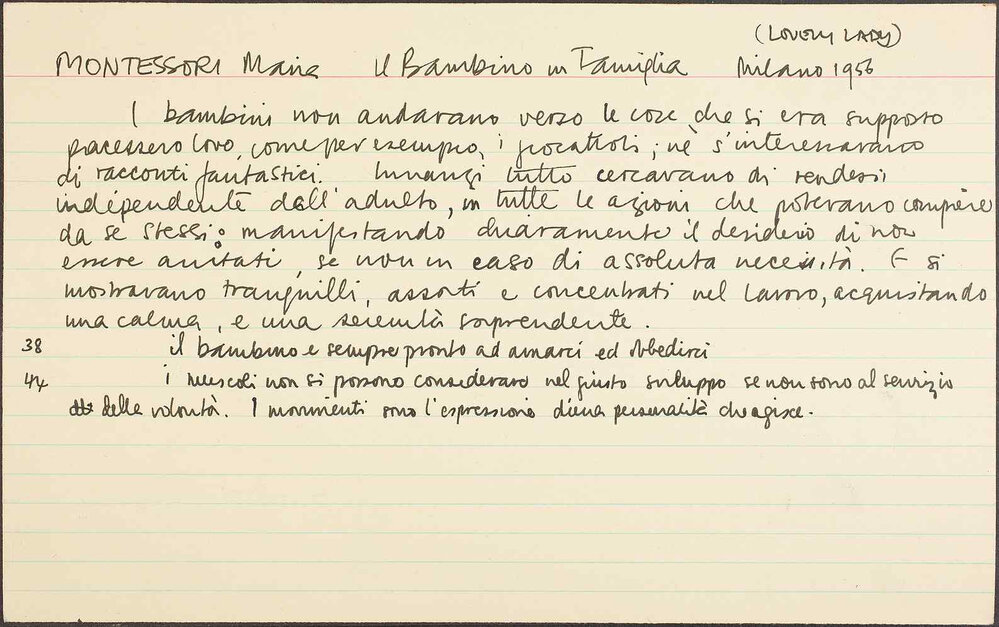 (LOVELY LADY)
MONTESSORI Maria Il Bambino in Famiglia Milano 1956
I bambini non andavano verso le cose che si era supposto
piacessero loro, come per esempio, i giocattoli; nè s'interessavano
di racconti fantastici. Innanzi tutto cercavano di rendersi
indipendente dall'adulto, in tutte le azioni che potevano compiere
da se stessi: manifestando chiaramente il desiderio di non
essere aiutati, se non in caso di assoluta necessità. E si
mostravano tranquilli, assorti e concentrati nel lavoro, acquistando
una calma, e una serenità sorprendente.
38 il bambino e sempre pronto ad amarci ed obbedirci
44 i muscoli non si possono considerare nel giusto sviluppo se non sono al servizio
della volontà. I movimenti sono l'espressione di una personalità che agisce.